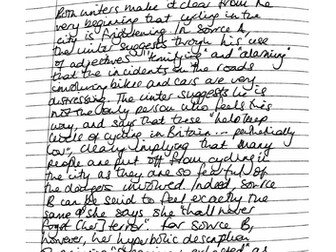 Both writers make it clear from the
very beginning that cycling in the
city is frightening. In source A,
the writer suggests through his use
of adjectives "terrifying" and "alarming"
that the incidents on the roads
involving bikes and cars are very
distressing. The writer suggests he is
not the only person who feels this
way, and says that these "help keep
levels of cycling in Britain ... pathetically
low" clearly implying that many
people are put off from cycling in
the city as they are so fearful of
the dangers involved. Indeed, source
B can be said to feel exactly the
same if she says she "shall never
forget the terror". For source B,
however, her hyperbolic description,
as